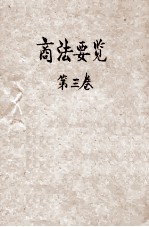 商法要览
第三卷